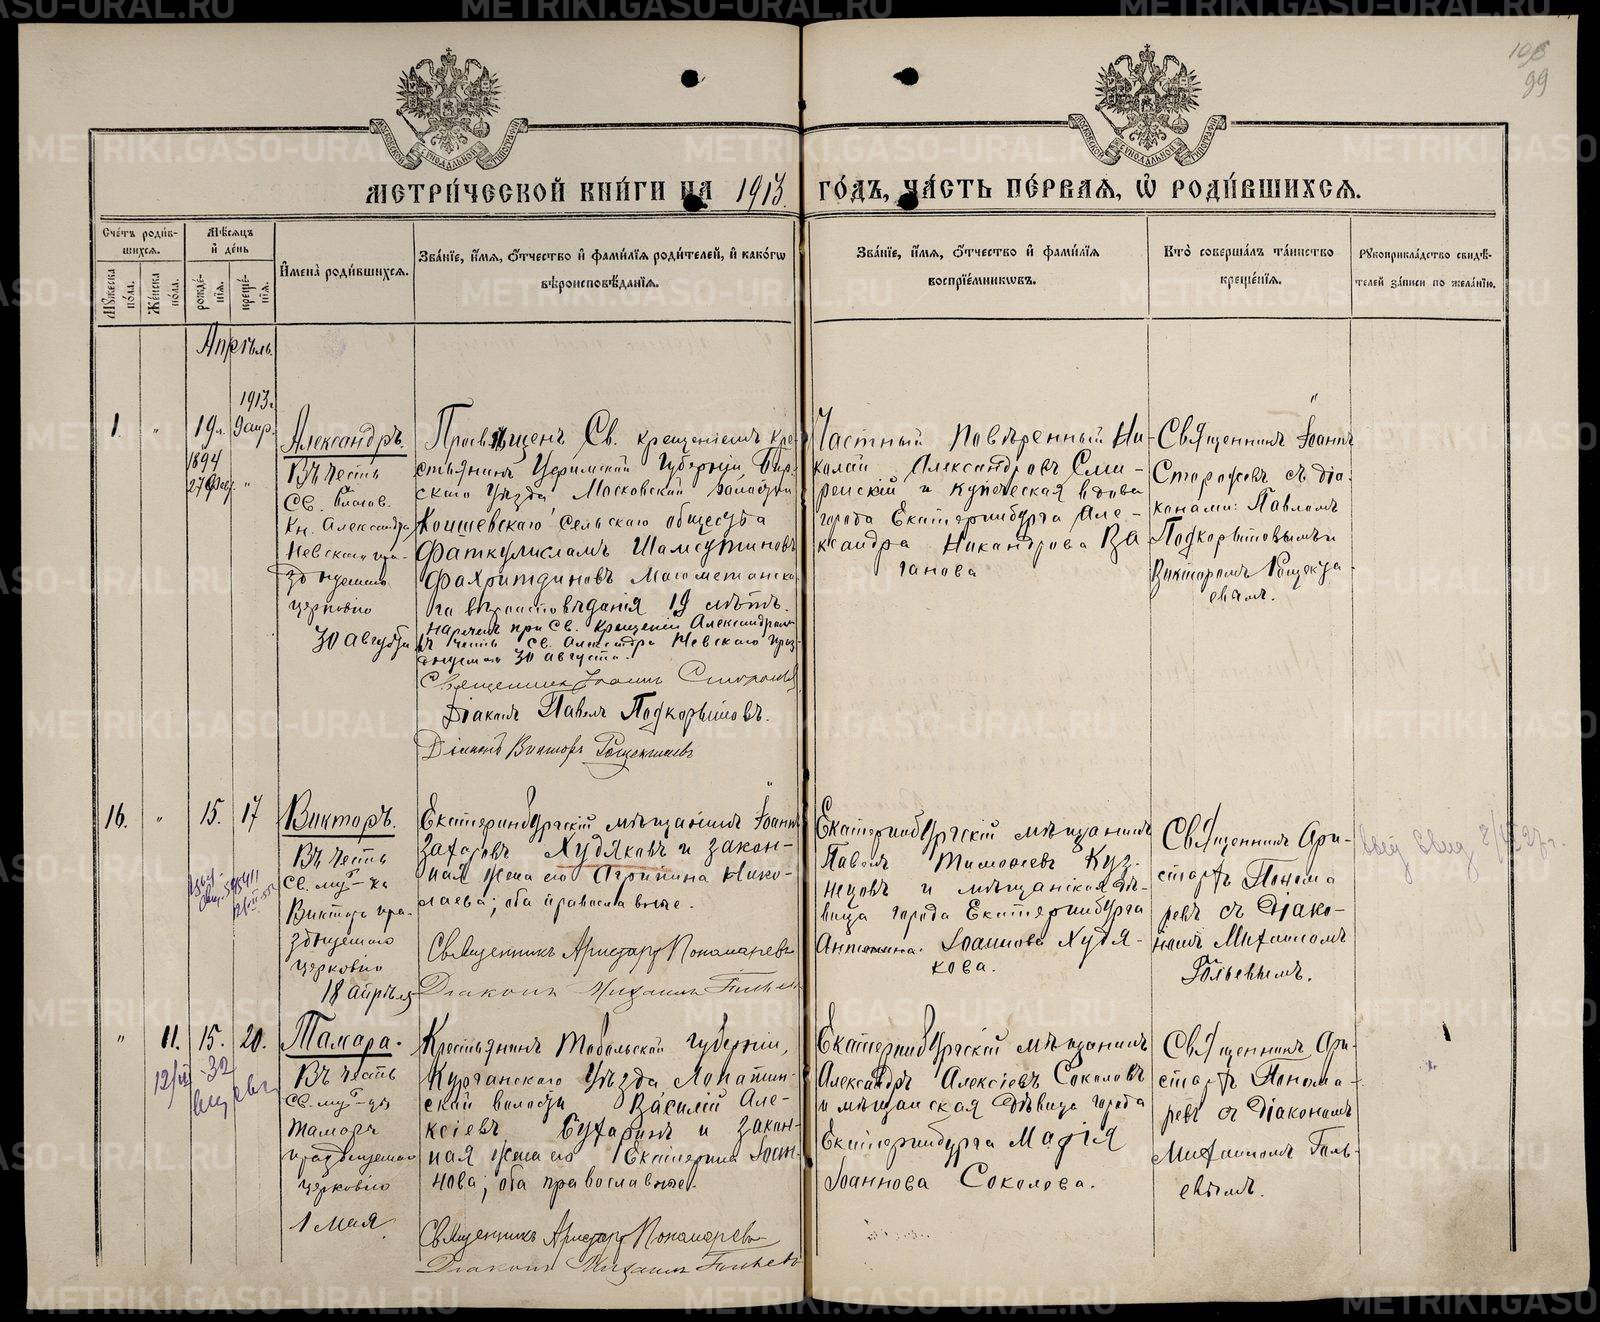 108
99
МЕТРИ́ЧЕСКОЙ КНИ́ГИ НА 1913. ГО́ДЪ, ЧА́СТЬ ПЕ́РВАЯ, Ѡ҆ РОДИ́ВШИХСЯ.
Сче́тъ роди́в-
шихся.
Мꙋ́жеска по́ла.
Же́нска по́ла.
Мѣ́сяцъ
и҆ де́нь
рожде́-
нїя.
креще́-
нїя.
И҆мена̀ роди́вшихся.
Зва́нїе, и҆́мя, ѻ҆́тчество и҆ фами́лїя роди́телей, и҆ како́гѡ
вѣроисповѣ́данїя.
Зва́нїе, и҆́мя, ѻ҆́тчество и҆ фами́лїя
воспрїе́мникѡвъ.
Кто̀ соверша́лъ та́инство
креще́нїя.
Рꙋкоприкла́дство свидѣ́-
телей за́писи по жела́нїю.
Апрѣль.
1.
"
19 л.
1894
27 Февр.
1913 г.
9 апр.
"
Александръ.
Въ честь
Св. Благов.
Кн. Александра
Невскаго пра-
зднуемаго
церковію
30 августа
Просвѣщенъ Св. крещеніемъ кре-
стьянинъ Уфимской губерніи Бир-
скаго уѣзда Московской волости
сельскаго общества
Фаткулисламъ Шамсутиновъ
Фахритдиновъ Магометанска-
го вѣроисповѣданія 19 лѣтъ.
Нареченъ при Св. крещеніи Александромъ
въ честь Св. Александра Невскаго праз-
днуемаго 30 августа.
Священникъ Іоаннъ Сторожевъ
Діаконъ Павелъ Подкорытовъ.
Діаконъ Викторъ
Частный повѣренный Ни-
колай Александровъ Сми-
ренскій и купеческая вдова
города Екатеринбурга Але-
ксандра Никандрова Ва-
ганова
Священникъ Іоаннъ
Сторожевъ съ діа-
конами: Павломъ
Подкорытовымъ и
Викторомъ
16.
"
15.
17
Викторъ.
Въ честь
Св. муч-ка
Виктора пра-
зднуемаго
церковію
18 апрѣля
Екатеринбургскій мѣщанинъ Іоаннъ
Захаровъ Худяковъ и закон-
ная жена его Агрипина Нико-
лаева; оба православные.
Священникъ Аристархъ Пономаревъ
Діаконъ Михаилъ Гильевъ
Екатеринбургскій мѣщанинъ
Павелъ Тимоѳеевъ Куз-
нецовъ и мѣщанская дѣ-
вица города Екатеринбурга
Антонина Іоаннова Худя-
кова.
Священникъ Ари-
стархъ Понома
ревъ съ Діако-
номъ Михаиломъ
Гильевымъ.
"
11.
15.
20.
Тамара.
Въ честь
Св. муч-цы
Тамары
празднуемой
церковію
1 мая.
Крестьянинъ Тобольской губерніи,
Курганскаго уѣзда Лопатин-
ской волости Василій Але-
ксіевъ Бухаринъ и закон-
ная жена его Екатерина Іоан-
нова; оба православные.
Священникъ Аристархъ Пономаревъ
Діаконъ Михаилъ Гильевъ
Екатеринбургскій мѣщанинъ
Александръ Алексіевъ Соколовъ
и мѣщанская дѣвица города
Екатеринбурга Марія
Іоаннова Соколова.
Священникъ Ари-
стархъ Понома-
ревъ съ Діакономъ
Михаиломъ Гиль-
евымъ.
METRIKI.GASO-URAL.RU